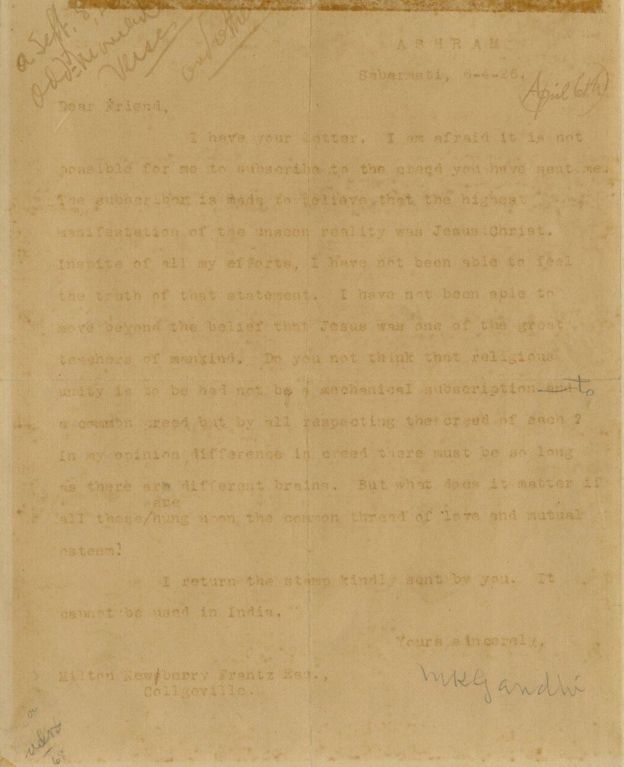 a Sept. 8,
Verse
ASHRAM
Sabarmati, 6-4-26.
April 6th
Dear Friend,
I have your letter. I am afraid it is not
possible for me to subscribe to the creed you have sent me.
The subscriber is made to believe that the highest
manifestation of the unseen reality was Jesus Christ.
Inspite of all my efforts, I have not been able to feel
the truth of that statement. I have not been able to
move beyond the belief that Jesus was one of the great
teachers of mankind. Do you not think that religious
unity is to be had not by a mechanical subscription to
a common creed but by all respecting the creed of each ?
In my opinion difference in creed there must be so long
as there are different brains. But what does it matter if
are
all these/hung upon the common thread of love and mutual
esteem!
I return the stamp kindly sent by you. It
cannot be used in India.
Yours sincerely,
Milton Newberry Frantz Esq.,
Collgeville.
MKGandhi